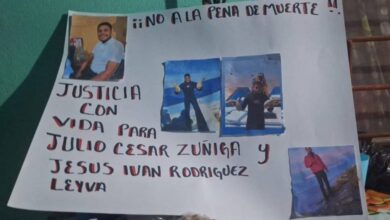 ¡¡NO A LA PENA DE MUERTE!!
JUSTICIA
CON
VIDA PARA
JULIO CESAR ZUÑIGA Y
JESUS IVAN RODRIGUEZ
LEYVA